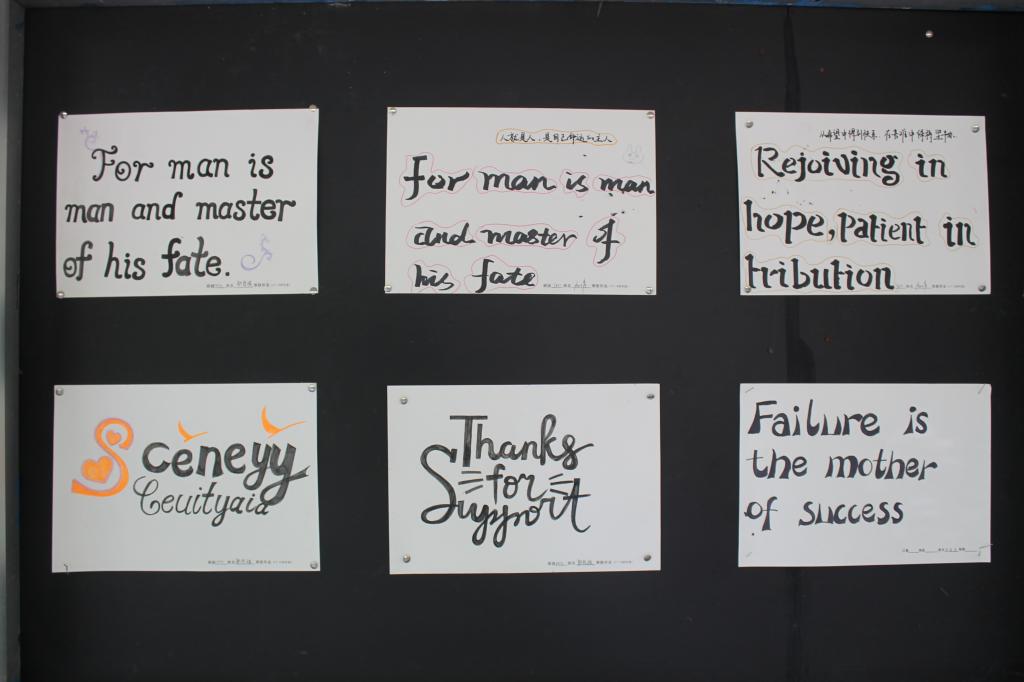 For man is
man and master
of his fate.
人就是人，是自己命运的主人
For man is man
and master of
his fate
从希望中得到快乐，在苦难中保持坚韧.
Rejoiving in
hope, patient in
tribution
Sceneyy
Ceuityaia
Thanks
for
Suyyort
Failure is
the mother
of success